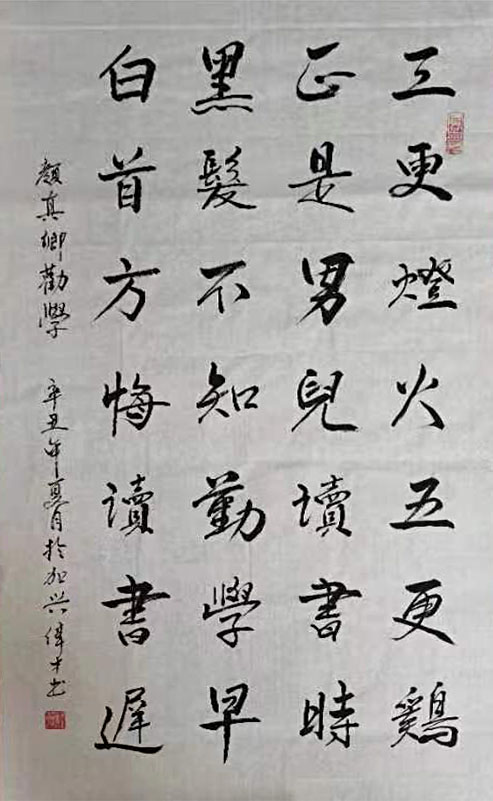 三更燈火五更鷄
正是男兒讀書時
黑髮不知勤學早
白首方悔讀書遲
顏真卿勸學 辛丑年夏月於加兴偉才书